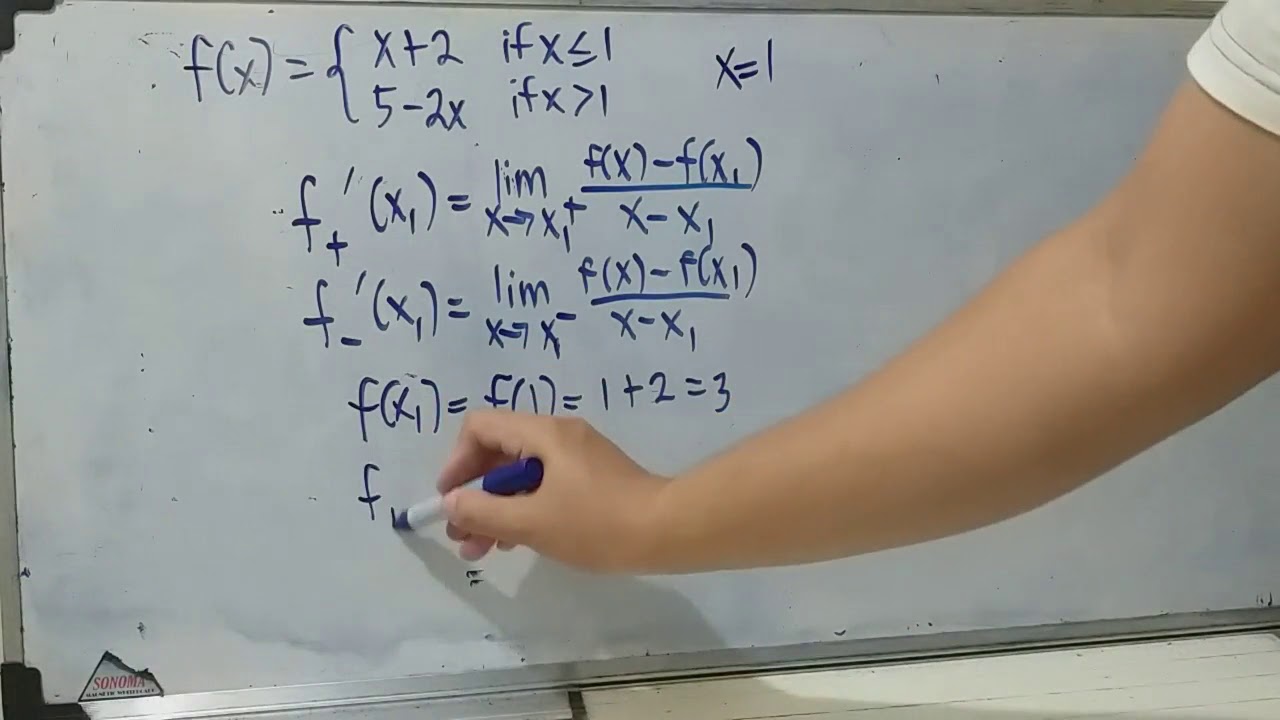 f(x) = { x+2 if x ≤ 1
5-2x if x > 1
x=1
f₊'(x₁) = lim x→x₁⁺ f(x)-f(x₁) / x-x₁
f₋'(x₁) = lim x→x₁⁻ f(x)-f(x₁) / x-x₁
f(x₁) = f(1) = 1+2 = 3
f
SONOMA